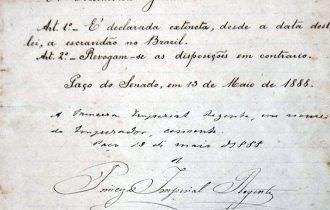 Art. 1º_ É declarada extincta, desde a data desta
lei, a escravidão no Brazil.
Art. 2º_ Revogam-se as disposições em contrario.
Paço do Senado, em 13 de Maio de 1888.
A Princeza Imperial Regente, em nome
do Imperador, consente.
Paço 13 de maio de 1888
Princeza Imperial Regente